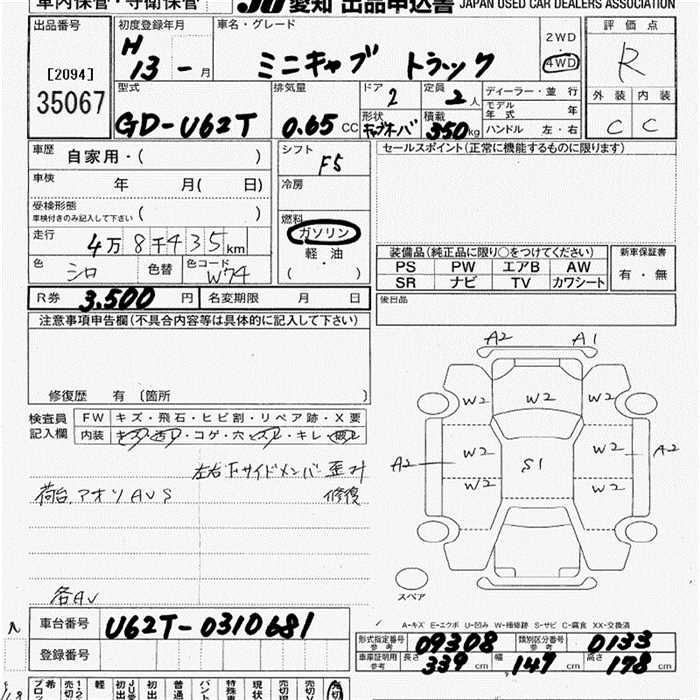 車内保管・守衛保管
JU 愛知 出品申込書 JAPAN USED CAR DEALERS ASSOCIATION
出品番号
[2094]
35067
初度登録年月
H
13 - 月
車名・グレード
ミニキャブ トラック
2WD
4WD
評価点
R
外装 内装
C C
型式
GD-U62T
排気量
0.65 CC
ドア
2
形状
定員
2 人
積載
350 kg
ディーラー・並行
モデル年式 年
ハンドル 左・右
車歴 自家用・( )
車検 年 月( 日)
受検形態
車検付きのみ記入して下さい ( )
走行 4万8千435km
色 シロ 色替 色コード W74
シフト
F5
冷房
燃料
ガソリン
軽・油
( ・ )
セールスポイント(正常に機能するものに限ります)
装備品(純正品に限り○をつけてください)
PS PW エアB AW
SR ナビ TV カワシート
新車保証書
有・無
後日品
R券 3.500 円 名変期限 月 日
注意事項申告欄(不具合内容等は具体的に記入して下さい)
修復歴 有 〔箇所 〕
検査員
記入欄
FW キズ・飛石・ヒビ割・リペア跡・X要
内装 キズ・汚レ・コゲ・穴・スレ・キレ・
左右下サイドメンバー歪み
修復
荷台.アオリAUS
各AU
A2 A1
W2 W2 W2
W2 W2
A2 S1 A2
W2 W2
スペア
A-キズ E-エクボ U-凹み W-補修跡 S-サビ C-腐食 XX-交換済
車台番号 U62T-0310681
登録番号
形式指定番号 参考 09308 類別区分番号 参考 0133
車庫証明用 参考 長さ 339 cm 幅 147 cm 高さ 178 cm